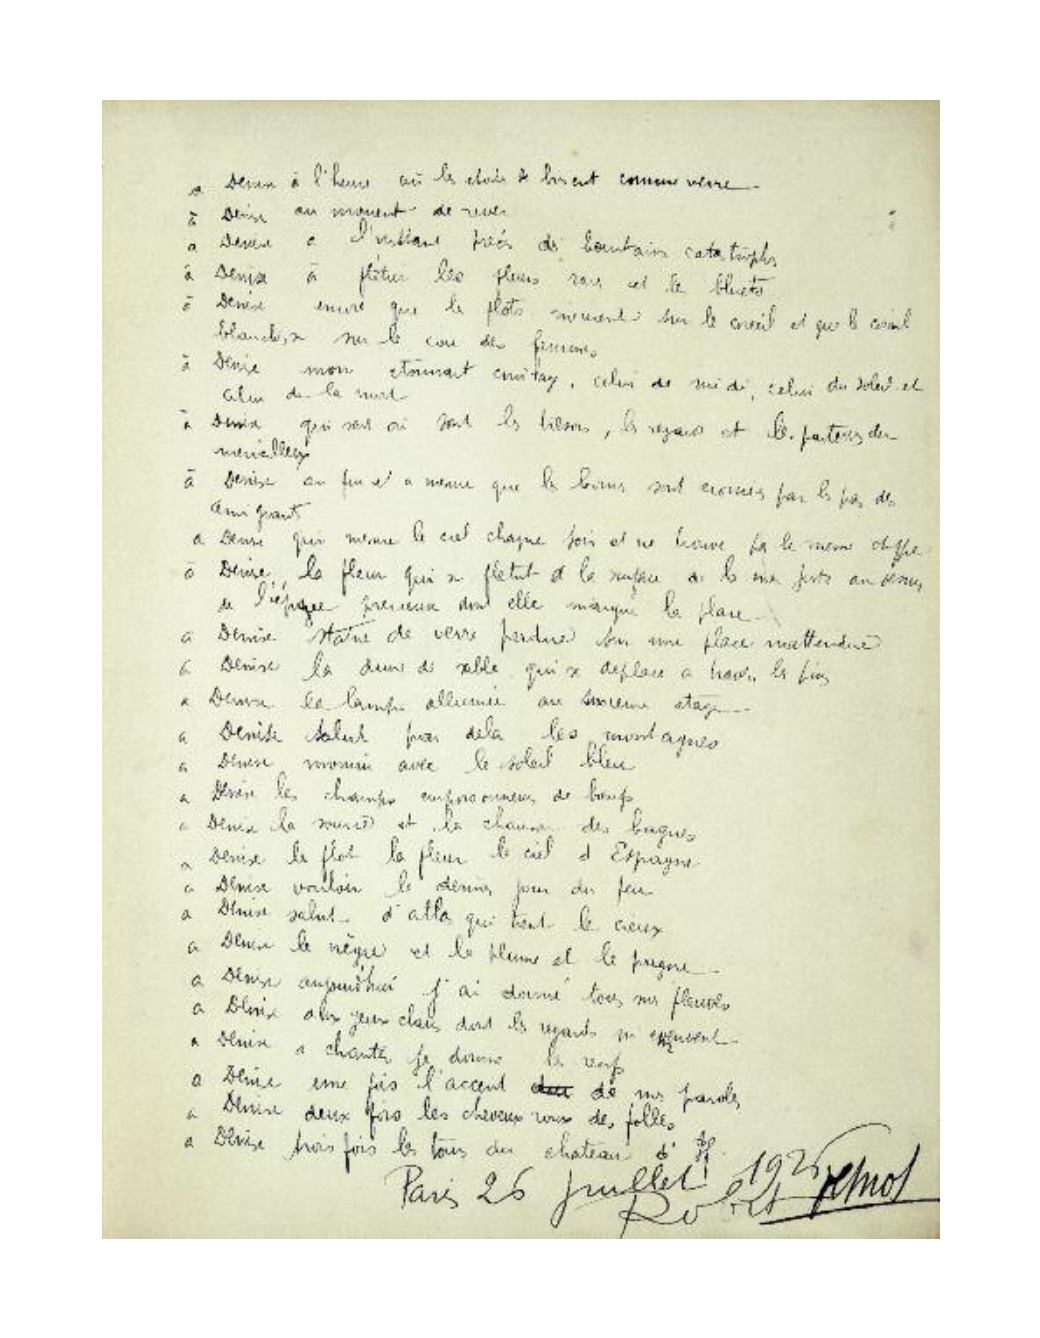 a Denise à l'heure où les choses se brisent comme verre
à Denise au moment de rever
a Denise a l'instant précis de lointains catastrophes
à Denise à flétrir les fleurs et le bluets
à Denise encore que les flots sur le corail et que le corail
sur le cou des femmes
à Denise mon étonnant, celui de midi, celui du soleil et
celui de la mort
à Denise qui sait où sont les trésors, les regards et les porteurs de
merveilles
à Denise a meme que les sont par les pas des
émigrants
a Denise qui mesure le ciel chaque fois et ne trouve pas le meme chiffre
à Denise, la fleur qui se flétrit à la surface de la mer juste au dessus
de l'épave précieuse dont elle marque la place
a Denise statue de verre perdue sur une place inattendue
a Denise la dune de sable qui se deplace a travers les pins
a Denise la lampe allumée au sixieme étage
a Denise salut par dela les montagnes
a Denise avec le soleil bleu
a Denise les champs de bœufs
a Denise la source et la chanson des bagnes
a Denise le flot la fleur le ciel d Espagne
a Denise vouloir le dernier jour du feu
a Denise salut d'atlas qui tient le cieux
a Denise le nègre et la plume et le
a Denise aujourd'hui j'ai donné tous mes fleuves
a Denise aux yeux clairs dont les regards m
a Denise a chanter je donne le
a Denise une fois l'accent de mes paroles
a Denise deux fois les cheveux roux des folles
a Denise trois fois les tours du chateau d'If
Paris 26 juillet 192
Robert Desnos